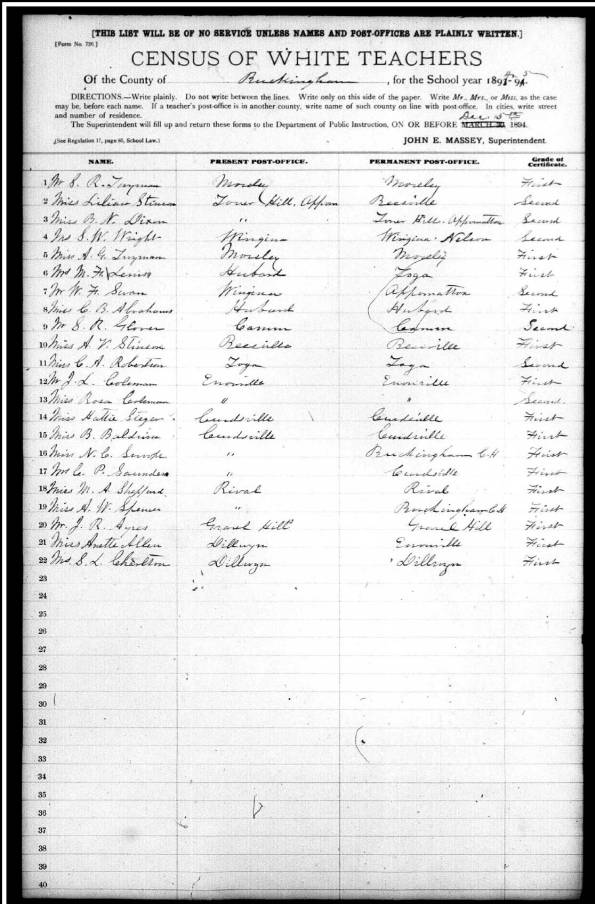 [THIS LIST WILL BE OF NO SERVICE UNLESS NAMES AND POST-OFFICES ARE PLAINLY WRITTEN.]
[Form No. 720.]
CENSUS OF WHITE TEACHERS
Of the County of Buckingham, for the School year 1894-95
DIRECTIONS.—Write plainly. Do not write between the lines. Write only on this side of the paper. Write Mr., Mrs., or Miss, as the case
may be, before each name. If a teacher's post-office is in another county, write name of such county on line with post-office. In cities, write street
and number of residence. Dec 5th
The Superintendent will fill up and return these forms to the Department of Public Instruction, ON OR BEFORE MARCH 31, 1894.
(See Regulation 17, page 85, School Law.) JOHN E. MASSEY, Superintendent.
NAME. PRESENT POST-OFFICE. PERMANENT POST-OFFICE. Grade of Certificate.
1 Mr S. R. Twyman Moseley Moseley First
2 Miss Lillian Stinson Tower Hill, Appom Second
3 Miss B. N. Dixon " Tower Hill. Appomattox Second
4 Mrs S. W. Wright Wingina Wingina Nelson Second
5 Miss A. G. Twyman Moseley Moseley First
6 Mrs M. F. Lewis Hubard Toga First
7 Mr W. F. Swan Wingina Appomattox Second
8 Miss C. B. Abrahams Hubard Hubard First
9 Mr S. R. Glover Camm Camm Second
10 Miss A. V. Stinson First
11 Miss C. A. Robertson Toga Toga Second
12 Mr J. L. Coleman Enonville Enonville First
13 Miss Rosa Coleman " " Second
14 Miss Hattie Steger Curdsville Curdsville First
15 Miss B. Baldwin Curdsville Curdsville First
16 Miss N. C. " Buckingham C.H. First
17 C. P. Saunders " Curdsville First
18 Miss M. A. Sheppard Rival Rival First
19 Miss A. W. Spencer " Buckingham C.H. First
20 Mr. J. R. Ayres Gravel Hill Gravel Hill First
21 Miss Anette Allen Dillwyn Enonville First
22 Mrs S. L. Dillwyn Dillwyn First
23
24
25
26
27
28
29
30
31
32
33
34
35
36
37
38
39
40